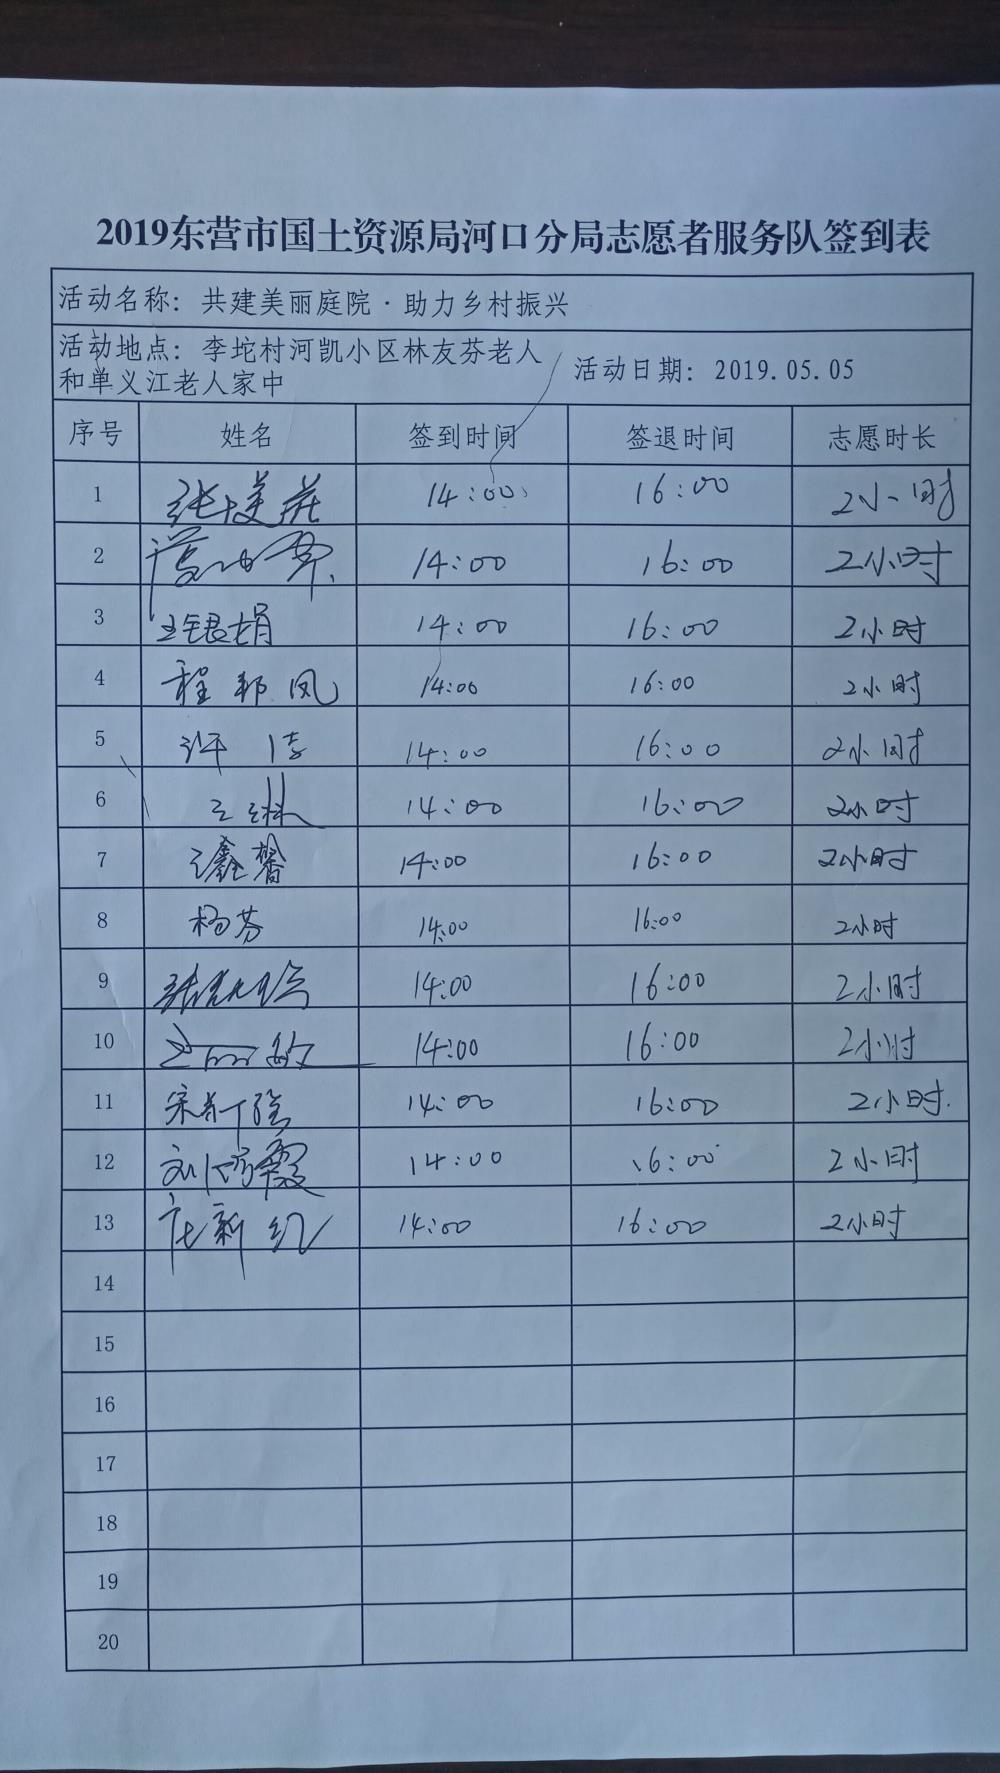 2019东营市国土资源局河口分局志愿者服务队签到表
活动名称：共建美丽庭院·助力乡村振兴
活动地点：李坨村河凯小区林友芬老人
和单义江老人家中
活动日期：2019.05.05
序号 姓名 签到时间 签退时间 志愿时长
1 张美荘 14:00 16:00 2小时
2 14:00 16:00 2小时
3 王银娟 14:00 16:00 2小时
4 程郭凤 14:00 16:00 2小时
5 许倩 14:00 16:00 2小时
6 王琳 14:00 16:00 2小时
7 鑫馨 14:00 16:00 2小时
8 杨芬 14:00 16:00 2小时
9 14:00 16:00 2小时
10 敏 14:00 16:00 2小时
11 宋 14:00 16:00 2小时
12 刘 霞 14:00 16:00 2小时
13 新红 14:00 16:00 2小时
14
15
16
17
18
19
20